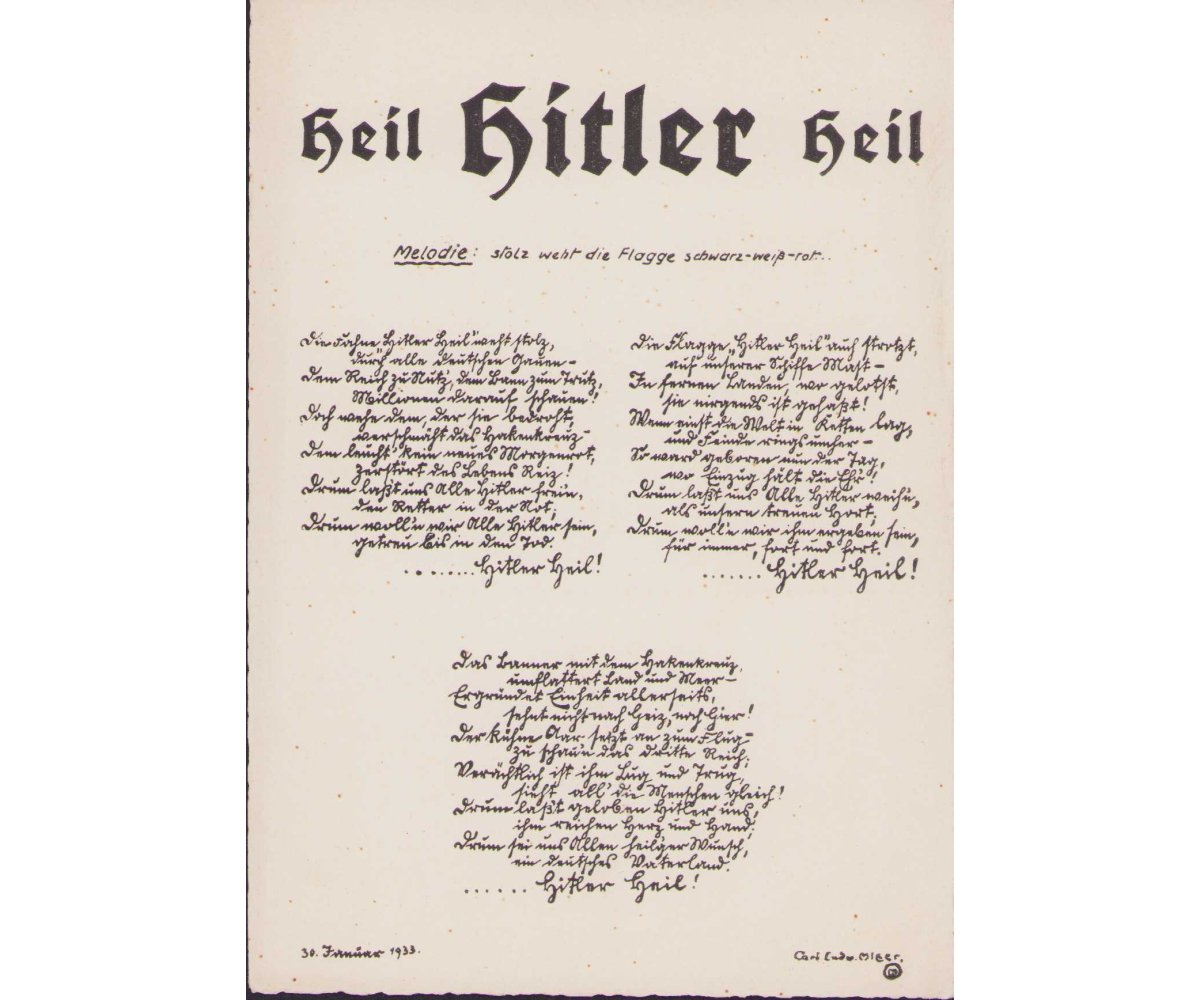 Heil Hitler Heil
Melodie: stolz weht die Flagge schwarz-weiß-rot..
Die Fahne „Hitler Heil“ weht stolz,
durch alle deutschen Gauen –
Dem Reich zu Nutz, dem Bann zum Trutz,
Millionen darauf schauen!
Doch wehe dem, der sie bedroht,
verschmäht das Hakenkreuz –
Dem leucht' kein neues Morgenrot,
zerstört des Lebens Reiz!
Drum laßt uns Alle Hitler frein,
den Retter in der Not;
Drum woll'n wir Alle Hitler sein,
getreu bis in den Tod.
........Hitler Heil!
Die Flagge „Hitler Heil“ auch strotzt,
auf unserer Schiffe Mast –
In fernen Landen, wo gelotst,
sie nirgends ist gehaßt!
Wenn einst die Welt in Ketten lag,
und Feinde rings umher –
So ward geboren nun der Tag,
wo Einzug hält die Ehr'!
Drum laßt uns Alle Hitler weih'n,
als unsern treuen Hort;
Drum woll'n wir ihm ergeben sein,
für immer, fort und fort.
....... Hitler Heil!
Das Banner mit dem Hakenkreuz,
umflattert Land und Meer –
Ergründet Einheit allerseits,
sehnt nicht nach Geiz, noch Gier!
Der kühne Aar setzt an zum Flug –
zu schau'n das dritte Reich;
Verächtlich ist ihm Lug und Trug,
sieht all' die Menschen gleich!
Drum laß't geloben Hitler uns,
ihm reichen Herz und Hand;
Drum sei uns Allen heil'ger Wunsch,
ein deutsches Vaterland.
...... Hitler Heil!
30. Januar 1933.
Carl Ludw.